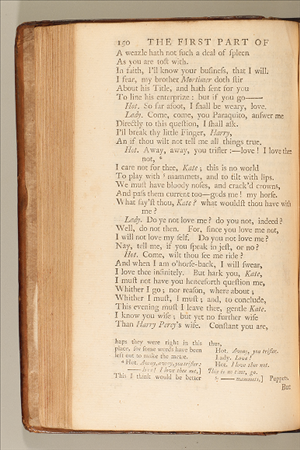 150 THE FIRST PART OF
A weazle hath not such a deal of spleen
As you are tost with.
In faith, I'll know your business, that I will.
I fear, my brother Mortimer doth stir
About his Title, and hath sent for you
To line his enterprize: but if you go——
Hot. So far afoot, I shall be weary, love.
Lady. Come, come, you Paraquito, answer me
Directly to this question, I shall ask.
I'll break thy little Finger, Harry,
An if thou wilt not tell me all things true.
Hot. Away, away, you trifler:—love! I love thee
not, *
I care not for thee, Kate; this is no world
To play with mammets, and to tilt with lips.
We must have bloody noses, and crack'd crowns,
And pass them current too—gods me! my horse.
What say'st thou, Kate? what wouldst thou have with
me?
Lady. Do ye not love me? do you not, indeed?
Well, do not then. For, since you love me not,
I will not love my self. Do you not love me?
Nay, tell me, if you speak in jest, or no?
Hot. Come, wilt thou see me ride?
And when I am o'horse-back, I will swear,
I love thee infinitely. But hark you, Kate,
I must not have you henceforth question me,
Whither I go; nor reason, where about
Whither I must, I must; and, to conclude,
This evening must I leave thee, gentle Kate.
I know you wise; but yet no further wise
Than Harry Percy's wife. Constant you are,
haps they were right in this
place, for some words have been
left out to make the metre.
* Hot. Away, away, you trifler:
——love! I love thee not,]
This I think would be better
thus,
Hot. Away, you trifler.
Lady. Love!
Hot. I love thee not.
This is no time, go.
—— mammets,] Puppets.
But